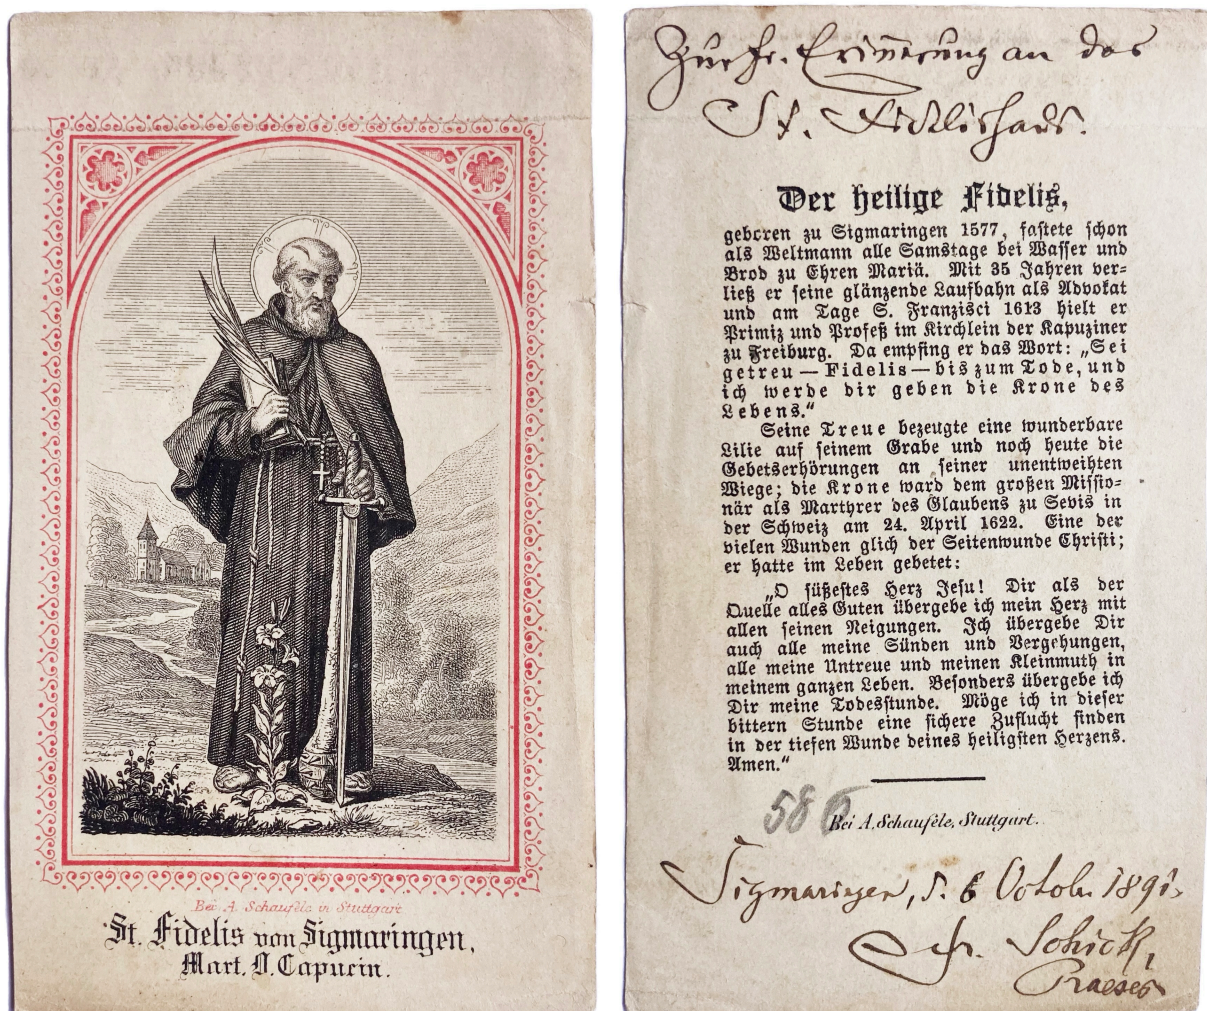 Bei A. Schaufele in Stuttgart
St. Fidelis von Sigmaringen,
Mart. O. Capucin.
Zur fr. Erinnerung an das
St. Fidelishaus.
Der heilige Fidelis,
geboren zu Sigmaringen 1577, fastete schon
als Weltmann alle Samstage bei Wasser und
Brod zu Ehren Mariä. Mit 35 Jahren ver-
ließ er seine glänzende Laufbahn als Advokat
und am Tage S. Franzisci 1613 hielt er
Primiz und Profeß im Kirchlein der Kapuziner
zu Freiburg. Da empfing er das Wort: „Sei
getreu — Fidelis — bis zum Tode, und
ich werde dir geben die Krone des
Lebens.“
Seine Treue bezeugte eine wunderbare
Lilie auf seinem Grabe und noch heute die
Gebetserhörungen an seiner unentweihten
Wiege; die Krone ward dem großen Missio-
när als Martyrer des Glaubens zu Sevis in
der Schweiz am 24. April 1622. Eine der
vielen Wunden glich der Seitenwunde Christi;
er hatte im Leben gebetet:
„O süßestes Herz Jesu! Dir als der
Quelle alles Guten übergebe ich mein Herz mit
allen seinen Neigungen. Ich übergebe Dir
auch alle meine Sünden und Vergehungen,
alle meine Untreue und meinen Kleinmuth in
meinem ganzen Leben. Besonders übergebe ich
Dir meine Todesstunde. Möge ich in dieser
bittern Stunde eine sichere Zuflucht finden
in der tiefen Wunde deines heiligsten Herzens.
Amen.“
58
Bei A. Schaufele, Stuttgart.
Sigmaringen, d. 6 Octob. 1891.
Schick,
Praeses